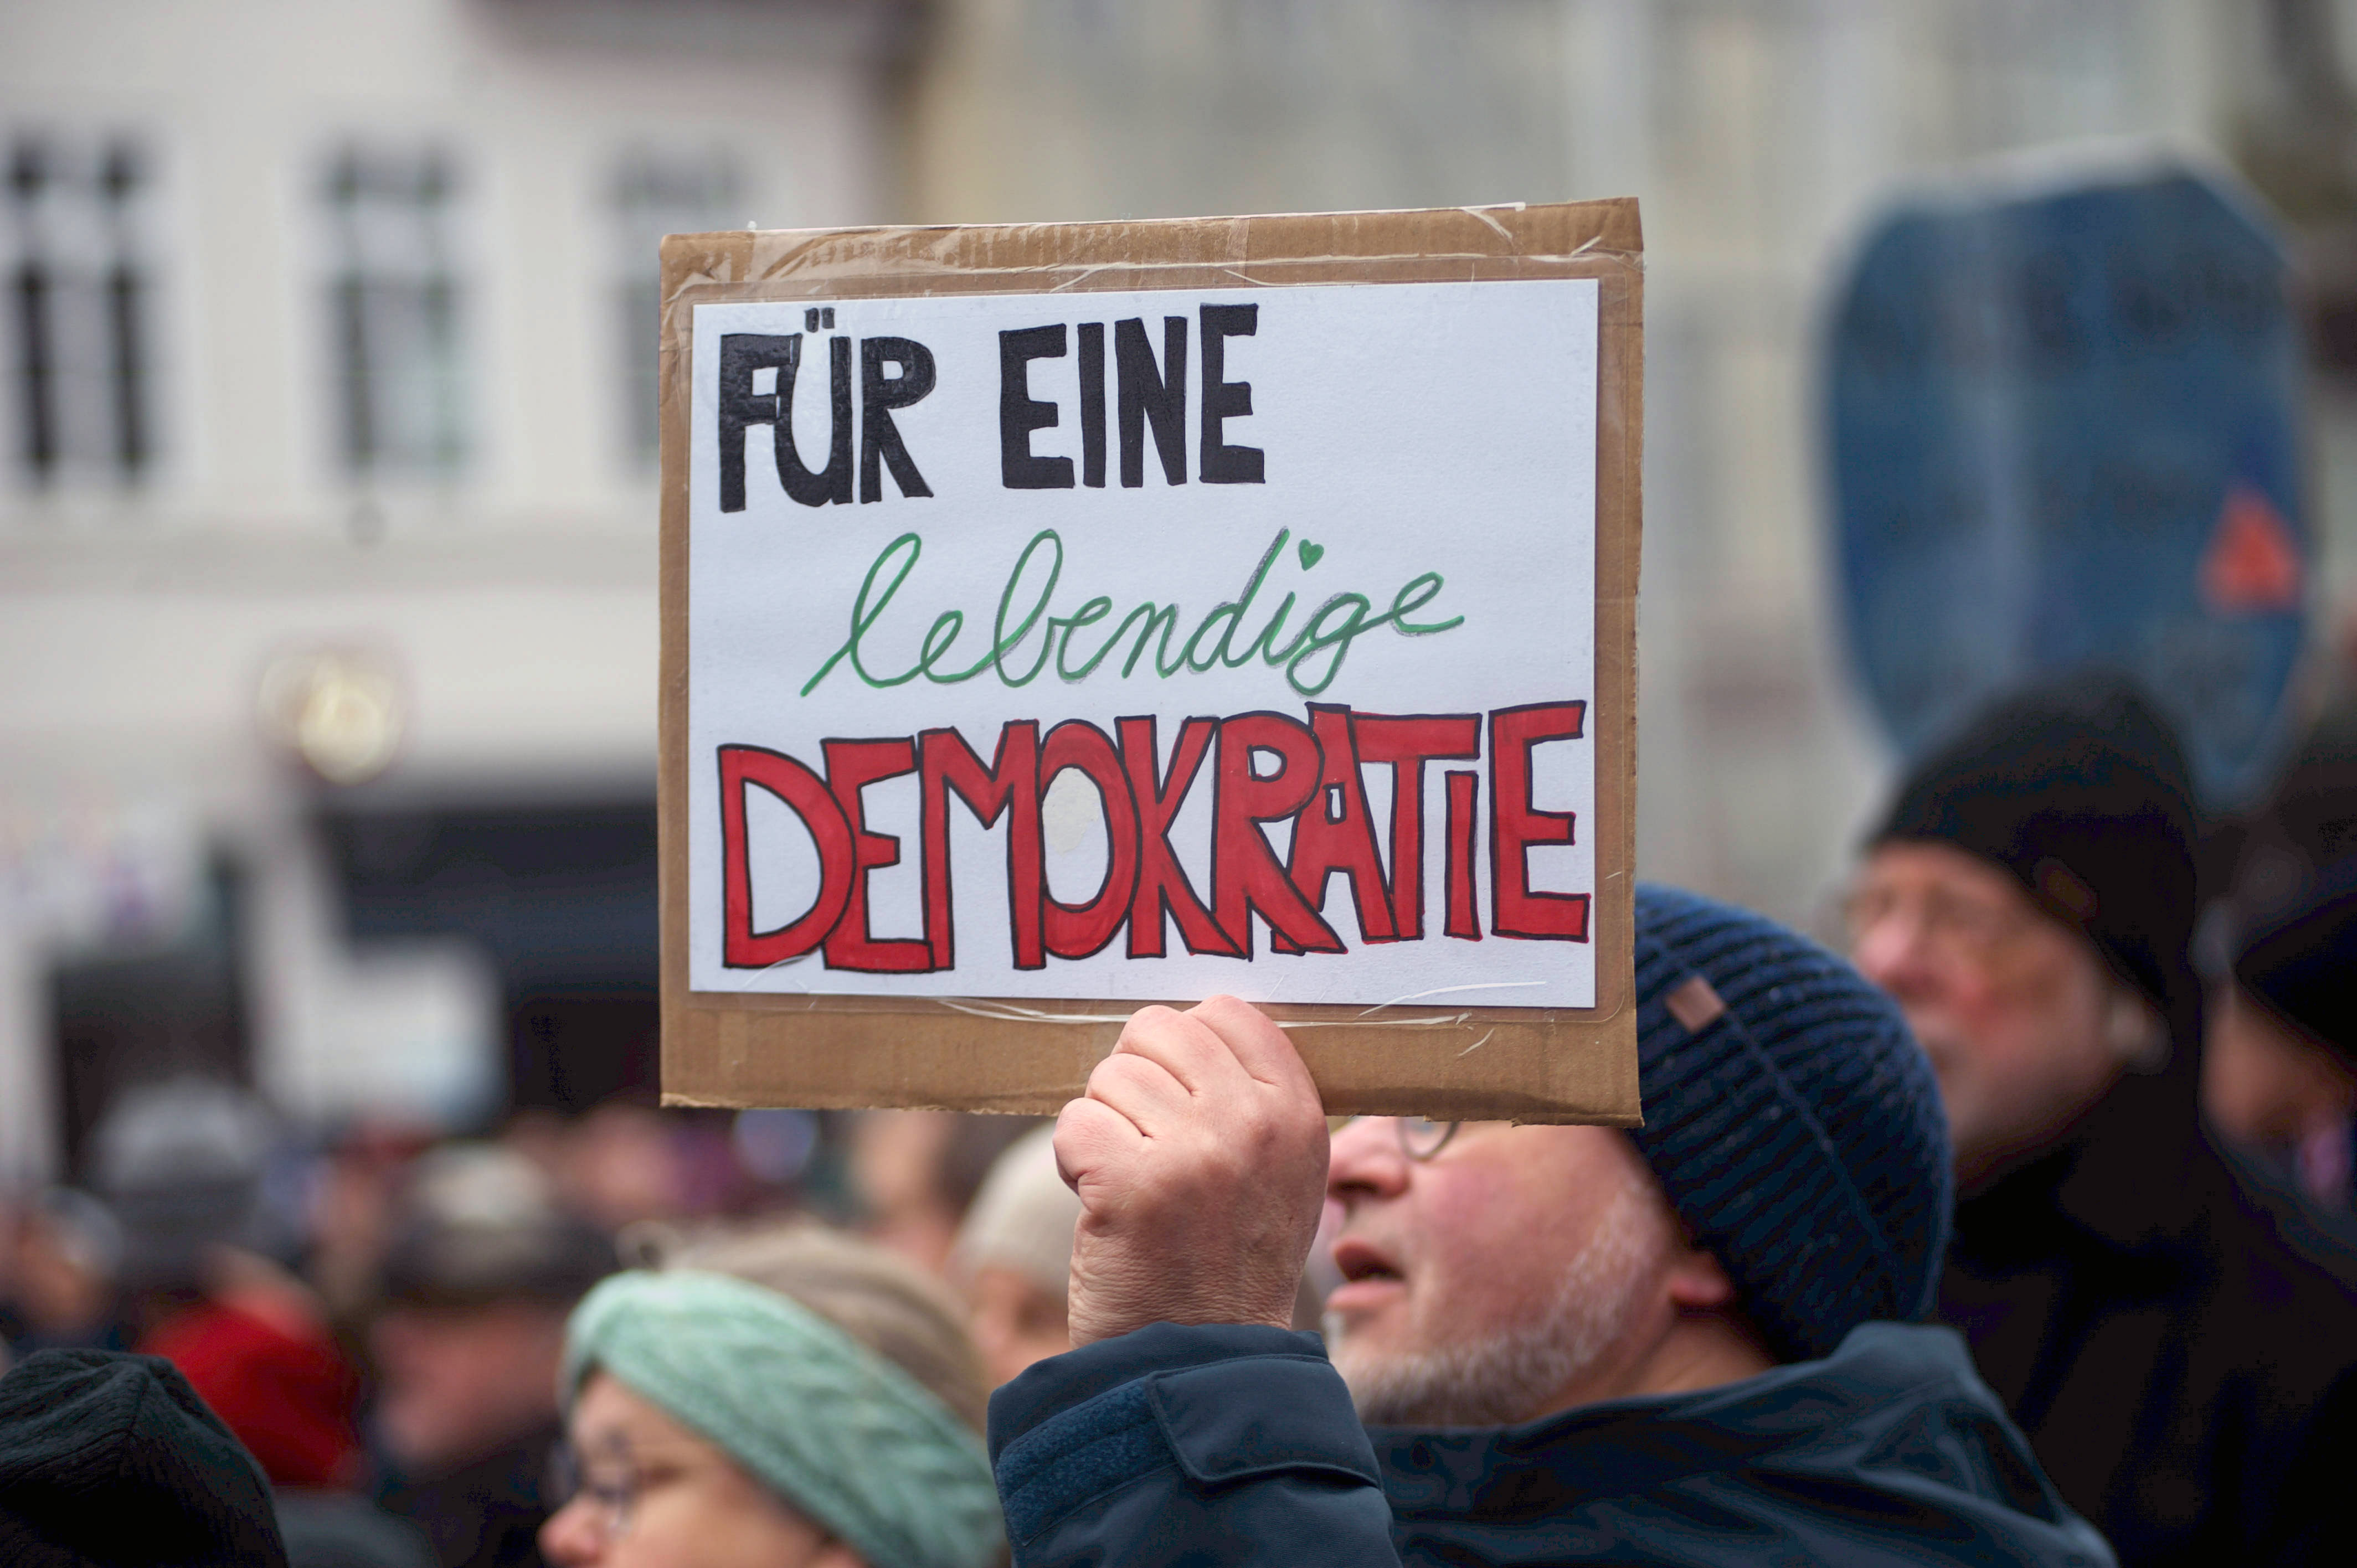 FÜR EINE
lebendige
DEMOKRATIE